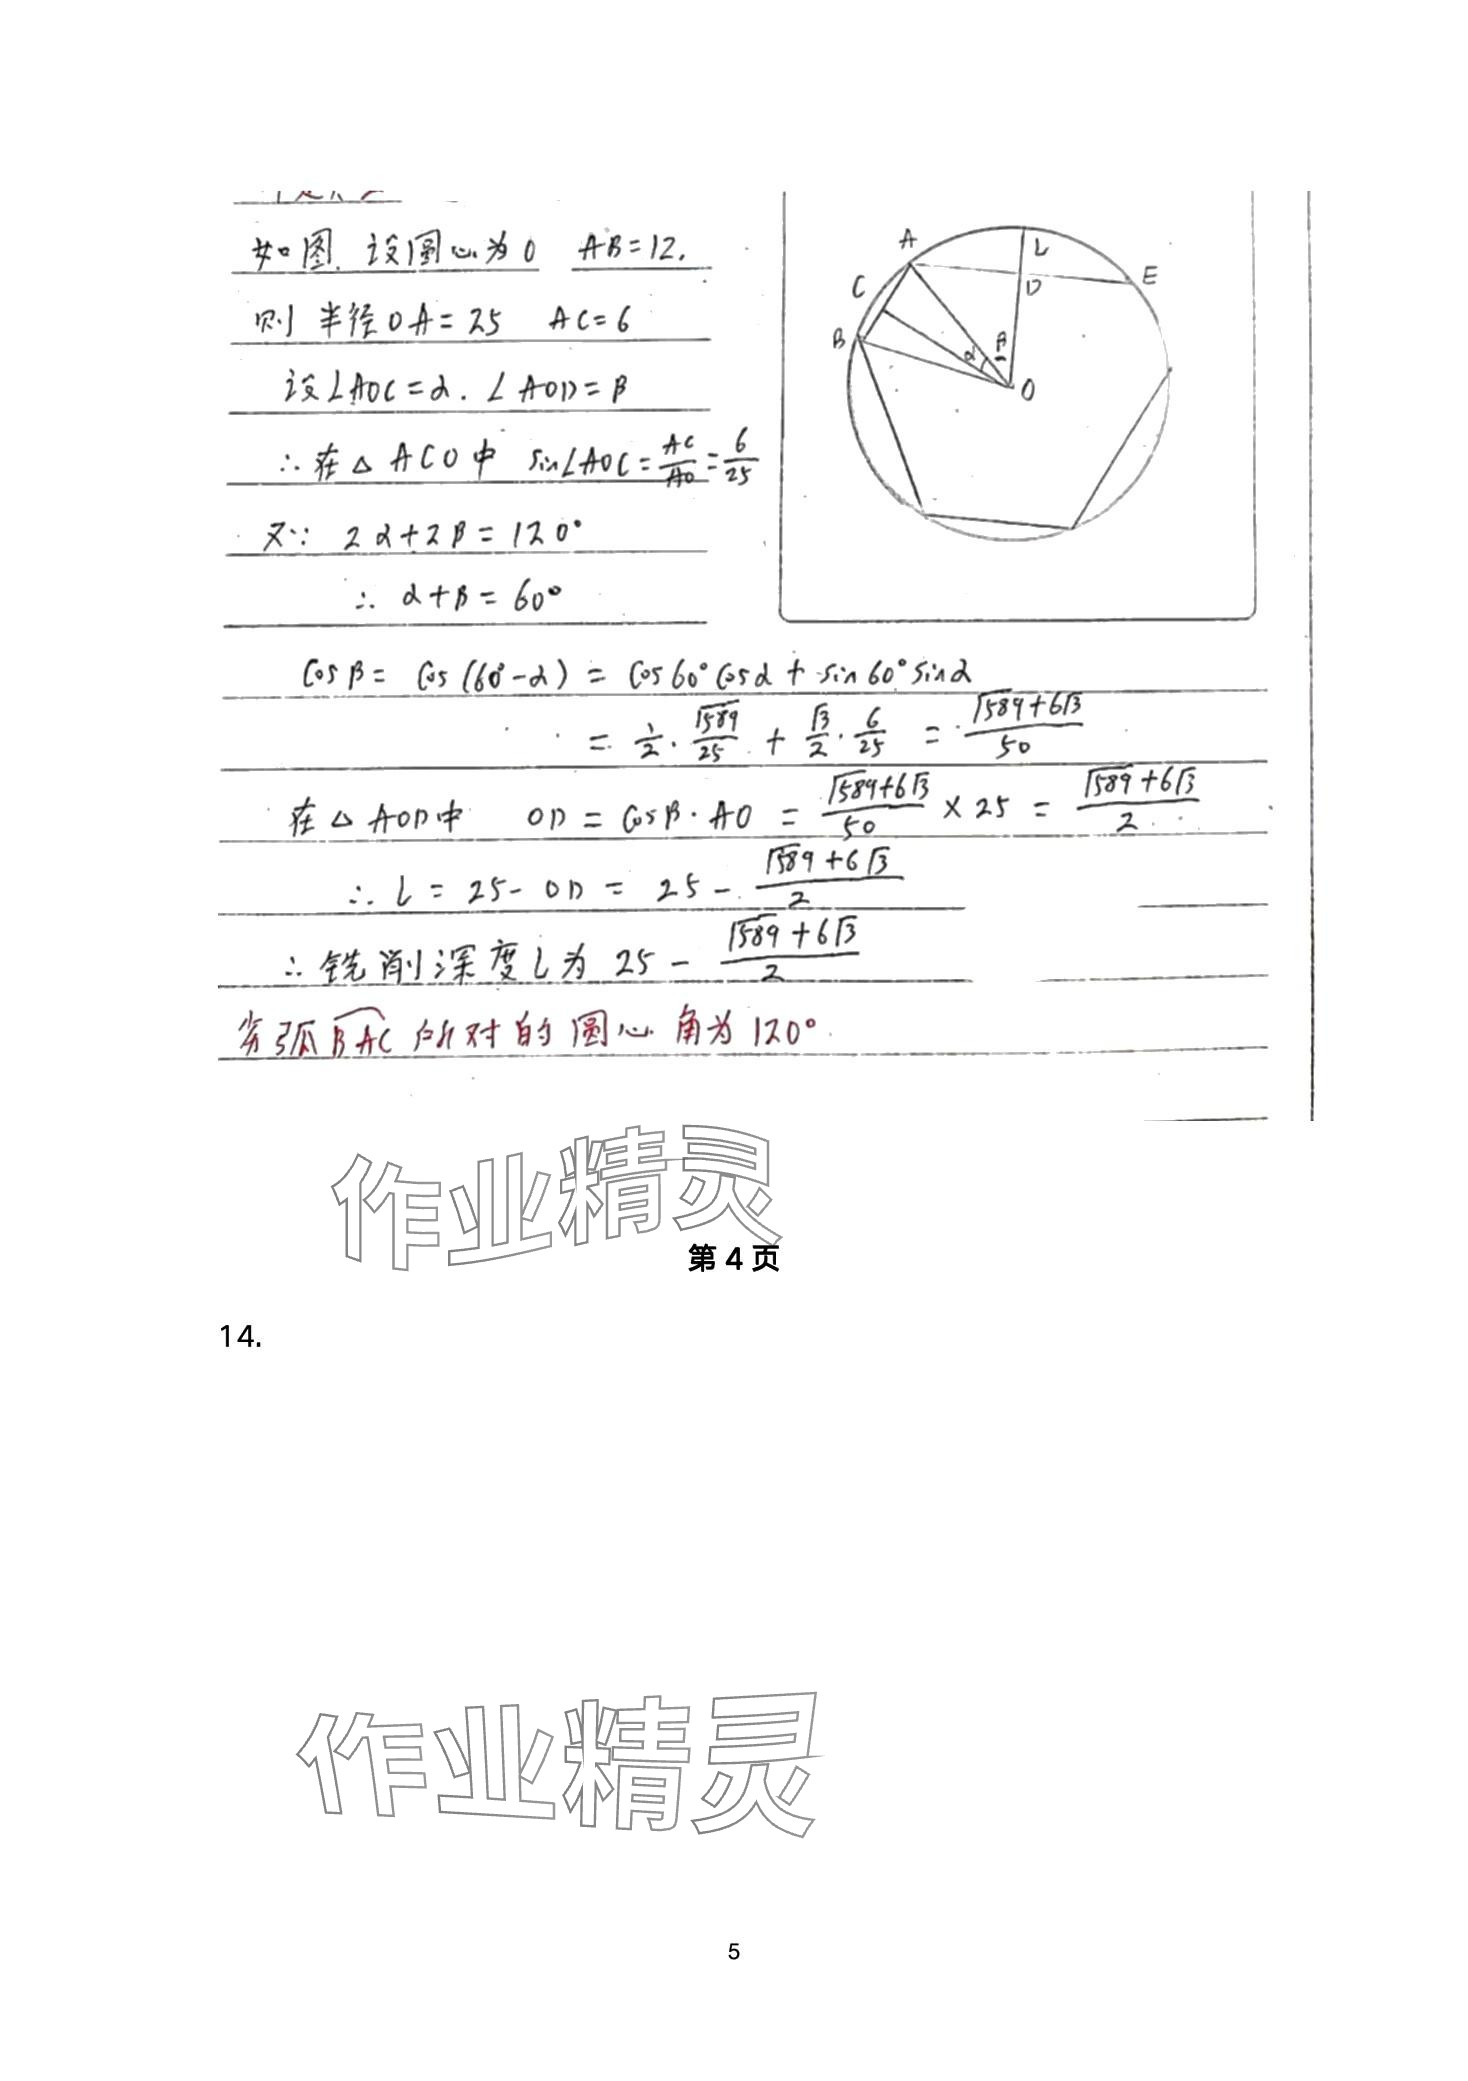 如图. 设圆心为O AB=12.
则 半径OA=25 AC=6
设∠AOC=α. ∠AOD=β
∴在△ACO中 sin∠AOC=AC/AO=6/25
又∵ 2α+2β=120°
∴ α+β=60°
A
L
C
D
E
B
α
β
O
cosβ= cos(60°-α) = cos60°cosα+sin60°sinα
= 1/2·√589/25+√3/2·6/25 = √589+6√3/50
在△AOD中 OD=cosβ·AO=√589+6√3/50×25=√589+6√3/2
∴ L=25-OD=25-√589+6√3/2
∴铣削深度L为25-√589+6√3/2
劣弧BAC所对的圆心角为120°.
作业精灵
第 4 页
14.
作业精灵
5